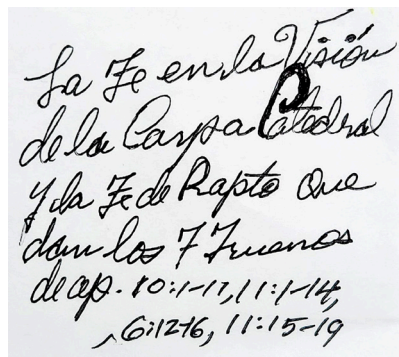 La Fe en la Visión
de la Carpa Catedral
y la Fe de Rapto que
dan los 7 Truenos
de ap. 10:1-17, 11:1-14,
6:12-16, 11:15-19